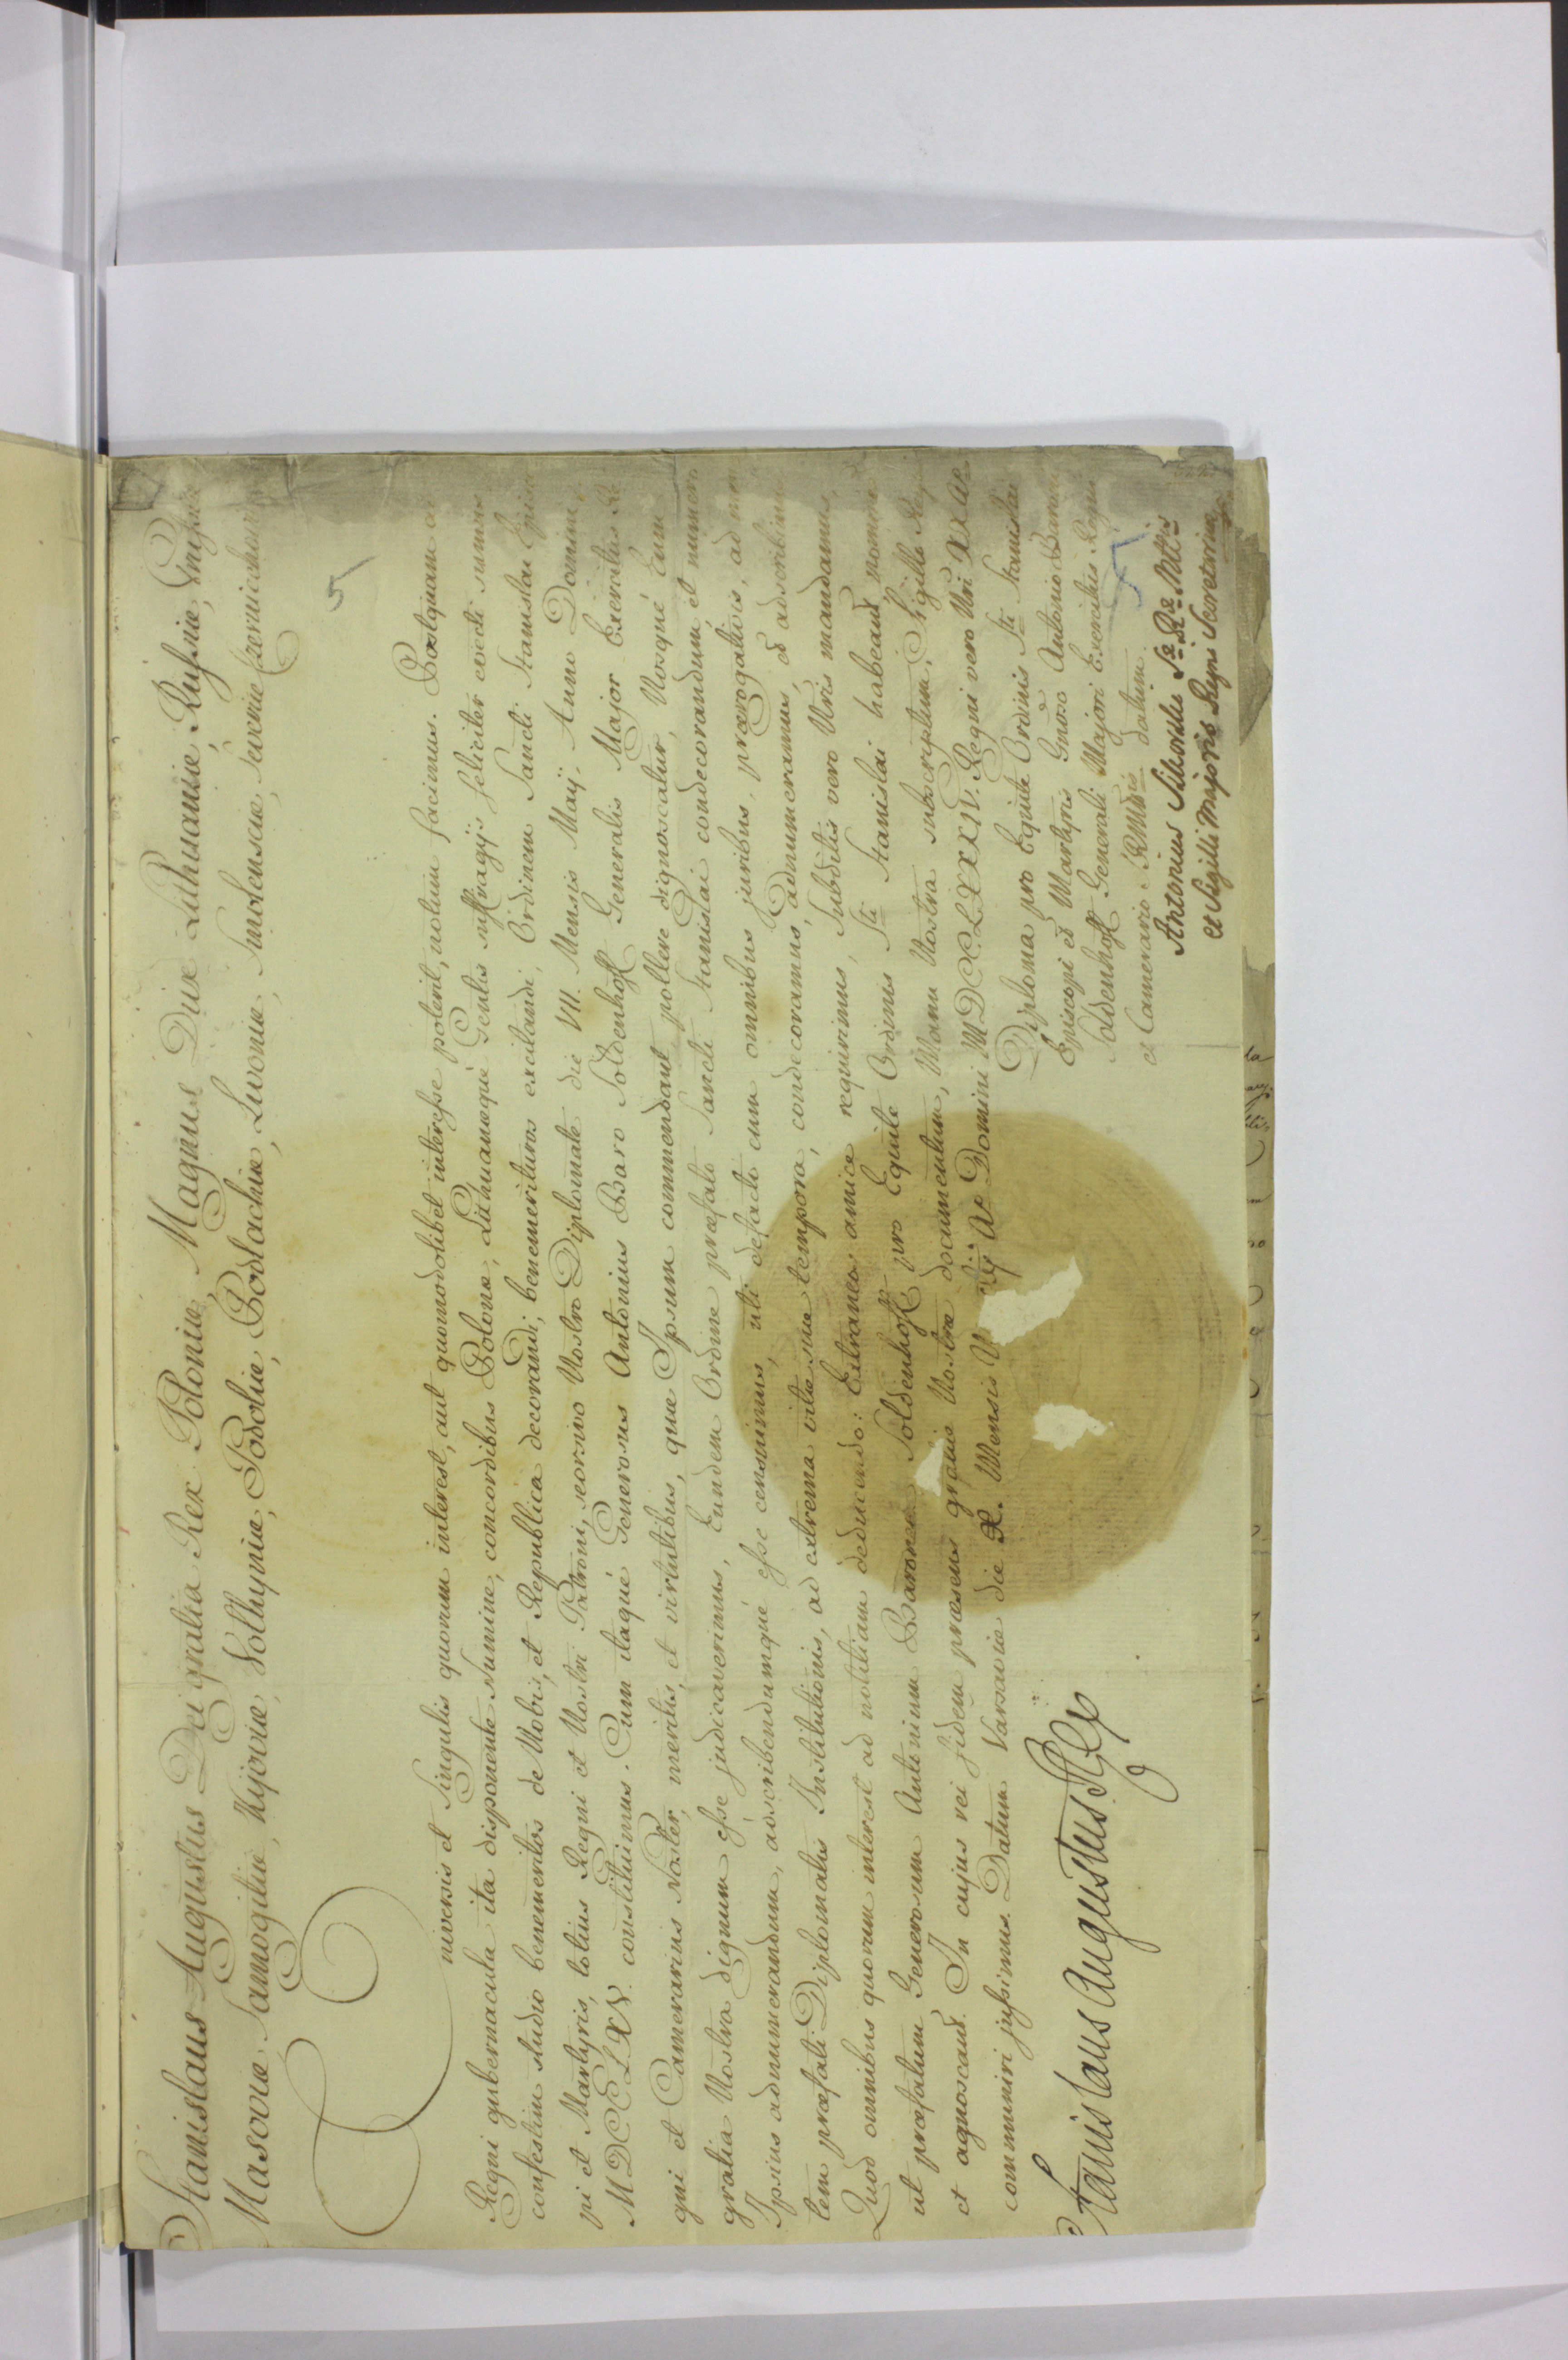 Stanislaus Augustus Dei gratia Rex Poloniæ, Magnus Dux Lithuaniæ, Russiæ, Prussiæ
Masoviæ, Samogitiæ, Kijoviæ, Volhyniæ, Podoliæ, Podlachiæ, Livoniæ, Smolensciæ, Severiæ Czernicahoviæ
5
Universis et Singulis quorum interest, aut quomodolibet interesse poterit, notum facimus. Postquam ad
Regni gubernacula ita disponente Numine, concordibus Polonæ, Lithuanæque Gentis suffragijs feliciter evecti sumus
confestim studio benemeritos de Nobis, et Republica decorandi, benemerituros excitandi, Ordinem Sancti Stanislai Episco
pi et Martyris, totius Regni et Nostri Patroni, seorsivo Nostro Diplomate die VII. Mensis Maij Anno Domini
MDCCLXV. constituimus. Cum itaque Generosus Antonius Baro Soldenhoff Generalis Major Exercitus Re
gni et Camerarius Noster, meritis, et virtutibus, quæ Ipsum commendant pollere dignoscatur, Nosque Eum
gratia Nostra dignum esse judicaverimus, Eundem Ordine præfato Sancti Stanislai condecorandum et numero
Ipsius adnumerandum, adscribendumque esse censuimus, uti defacto cum omnibus juribus, prærogativis, ad men
tem præfati Diplomatis Institutionis, ad extrema vitæ suæ tempora, condecoramus, adnumeramus, et adscribimus
Quod omnibus quorum interest ad notitiam deducendo: Extraneos amice requirimus, Subditis vero Nris mandamus,
ut præfatum Generosum Antonium Baronem Soldenhoff pro Equite Ordinis Sti Stanislai habeant nominent
et agnoscant. In cujus rei fidem præsens gratiæ Nostræ documentum, Manu Nostra subscriptum, Sigillo Regni
communiri jussimus. Datum Varsaviæ die X. Mensis Aº Domini MDCCLXXXIV. Regni vero Nri XX Aº
Diploma pro Equite Ordinis Sti Stanislai
Episcopi et Martyris Gnoso Antonio Baroni
Soldenhoff Generali Majori Exercitus Regni
et Camerario datum.
5
Stanislaus Augustus Rex
Antonius Sikorski Sæ Ræ Mtis
et Sigilli Majoris Regni Secretarius